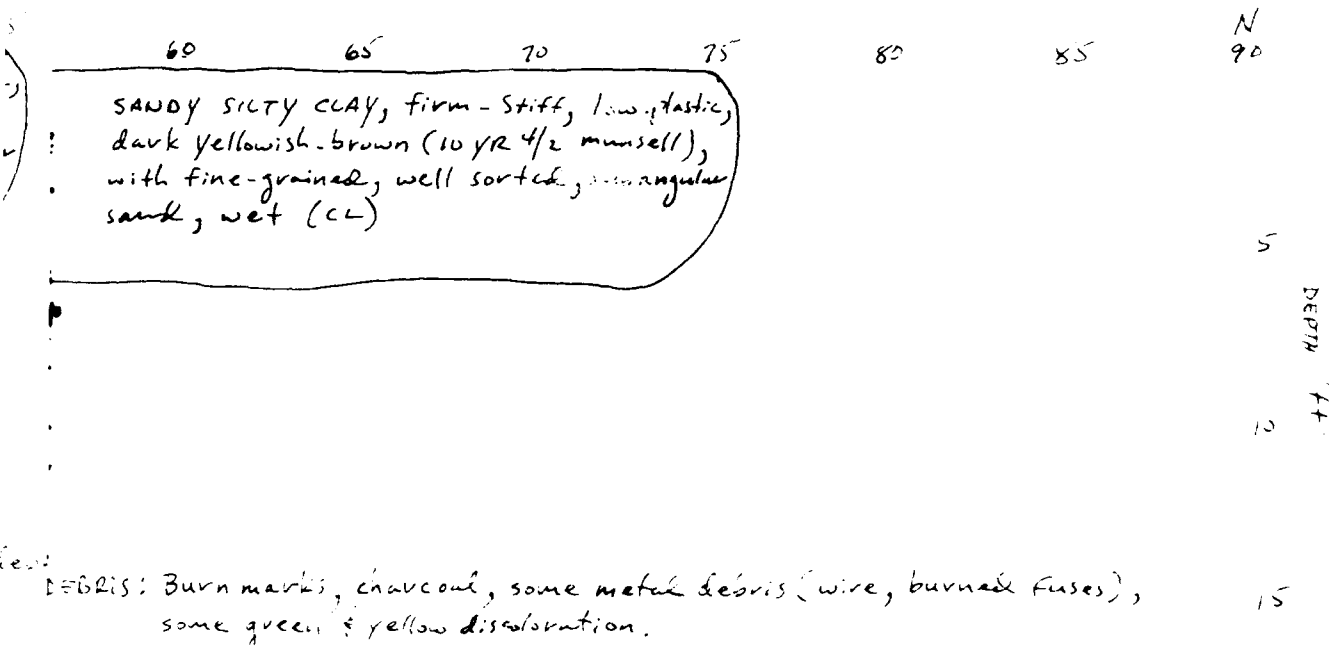 N
60 65 70 75 80 85 90
SANDY SILTY CLAY, firm-stiff, low plastic,
dark yellowish-brown (10 YR 4/2 munsell),
with fine-grained, well sorted,
sand, wet (CL)
5
DEPTH ft
10
DEBRIS: Burn marks, charcoal, some metal debris (wire, burned fuses),
15
some green & yellow discoloration.